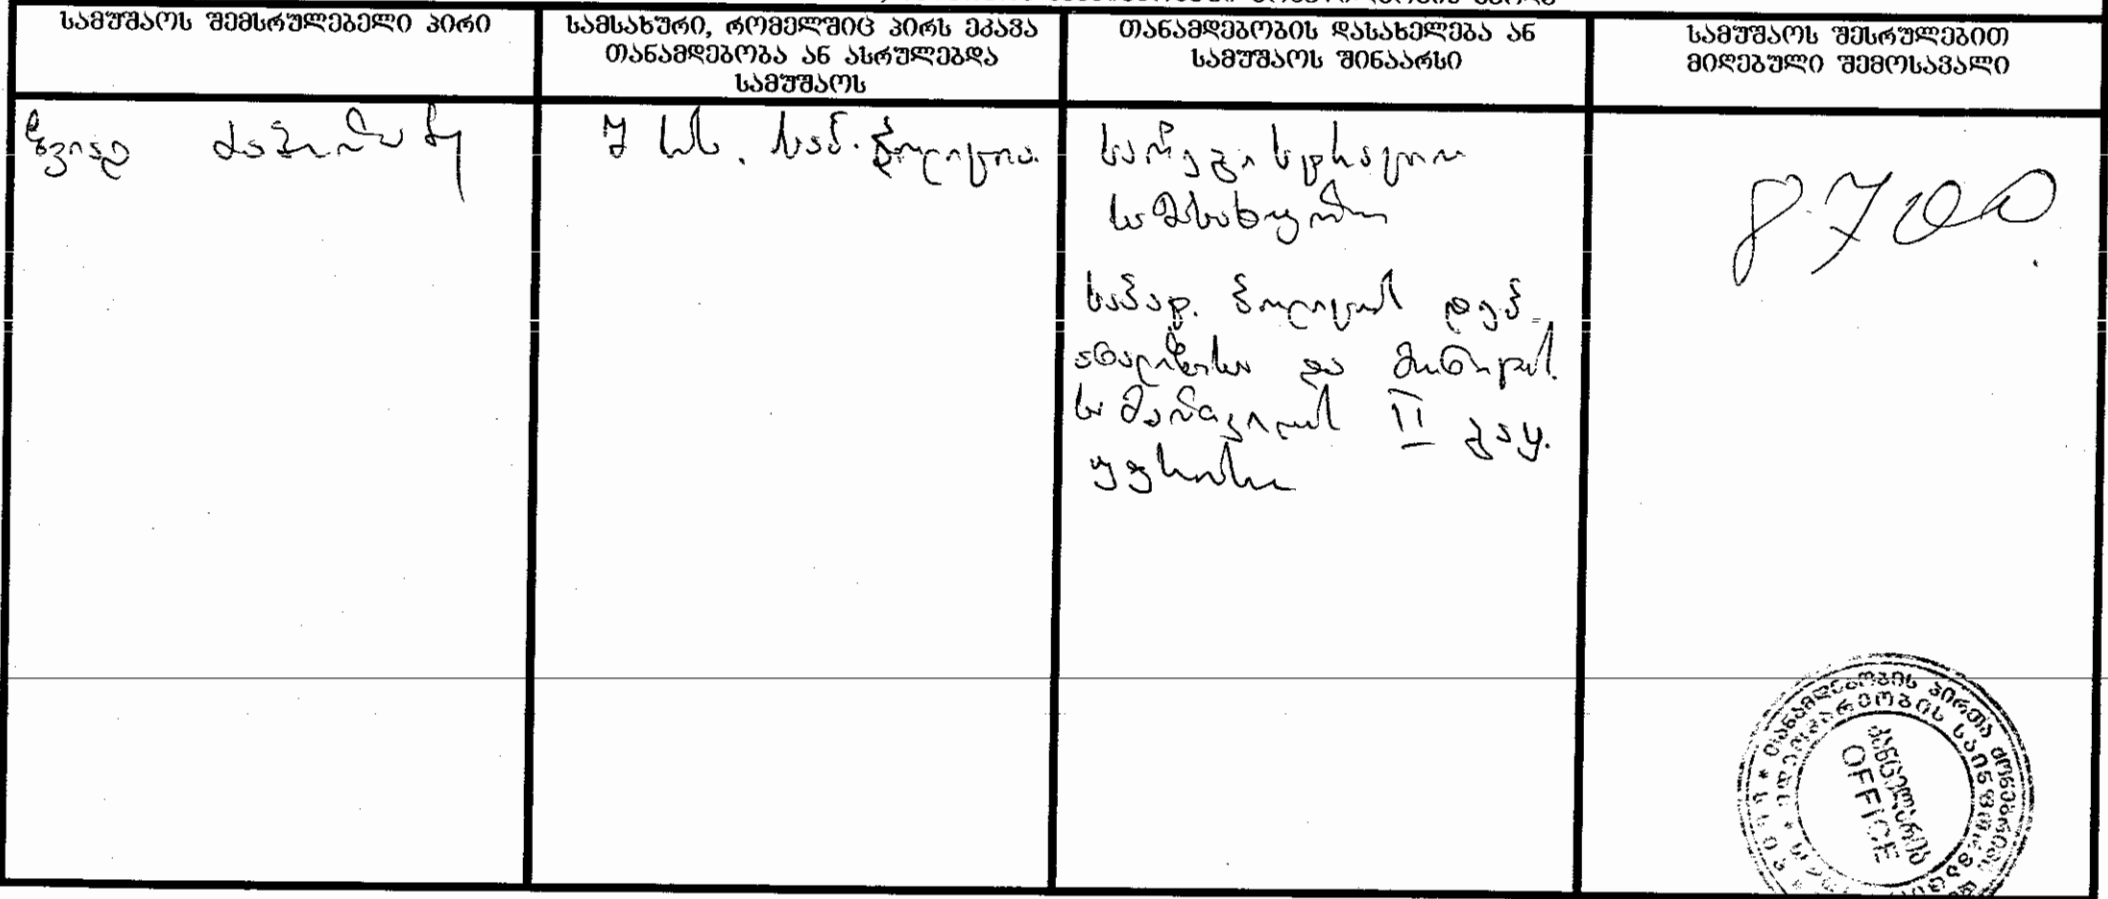 სამუშაოს შემსრულებელი პირი
სამსახური, რომელშიც პირს ეკავა
თანამდებობა ან ასრულებდა
სამუშაოს
თანამდებობის დასახელება ან
სამუშაოს შინაარსი
სამუშაოს შესრულებით
მიღებული შემოსავალი
ზვიად
შ სს. საპ. პოლიცია
სარეგისტრაციო
სამსახური
საპატ. პოლიციის დეპ.
ანალიზისა და
სამმართველოს II გაყ.
უფროსი
8700
თანამდებობის პირთა ქონებრივ
კანცელარია
OFFICE